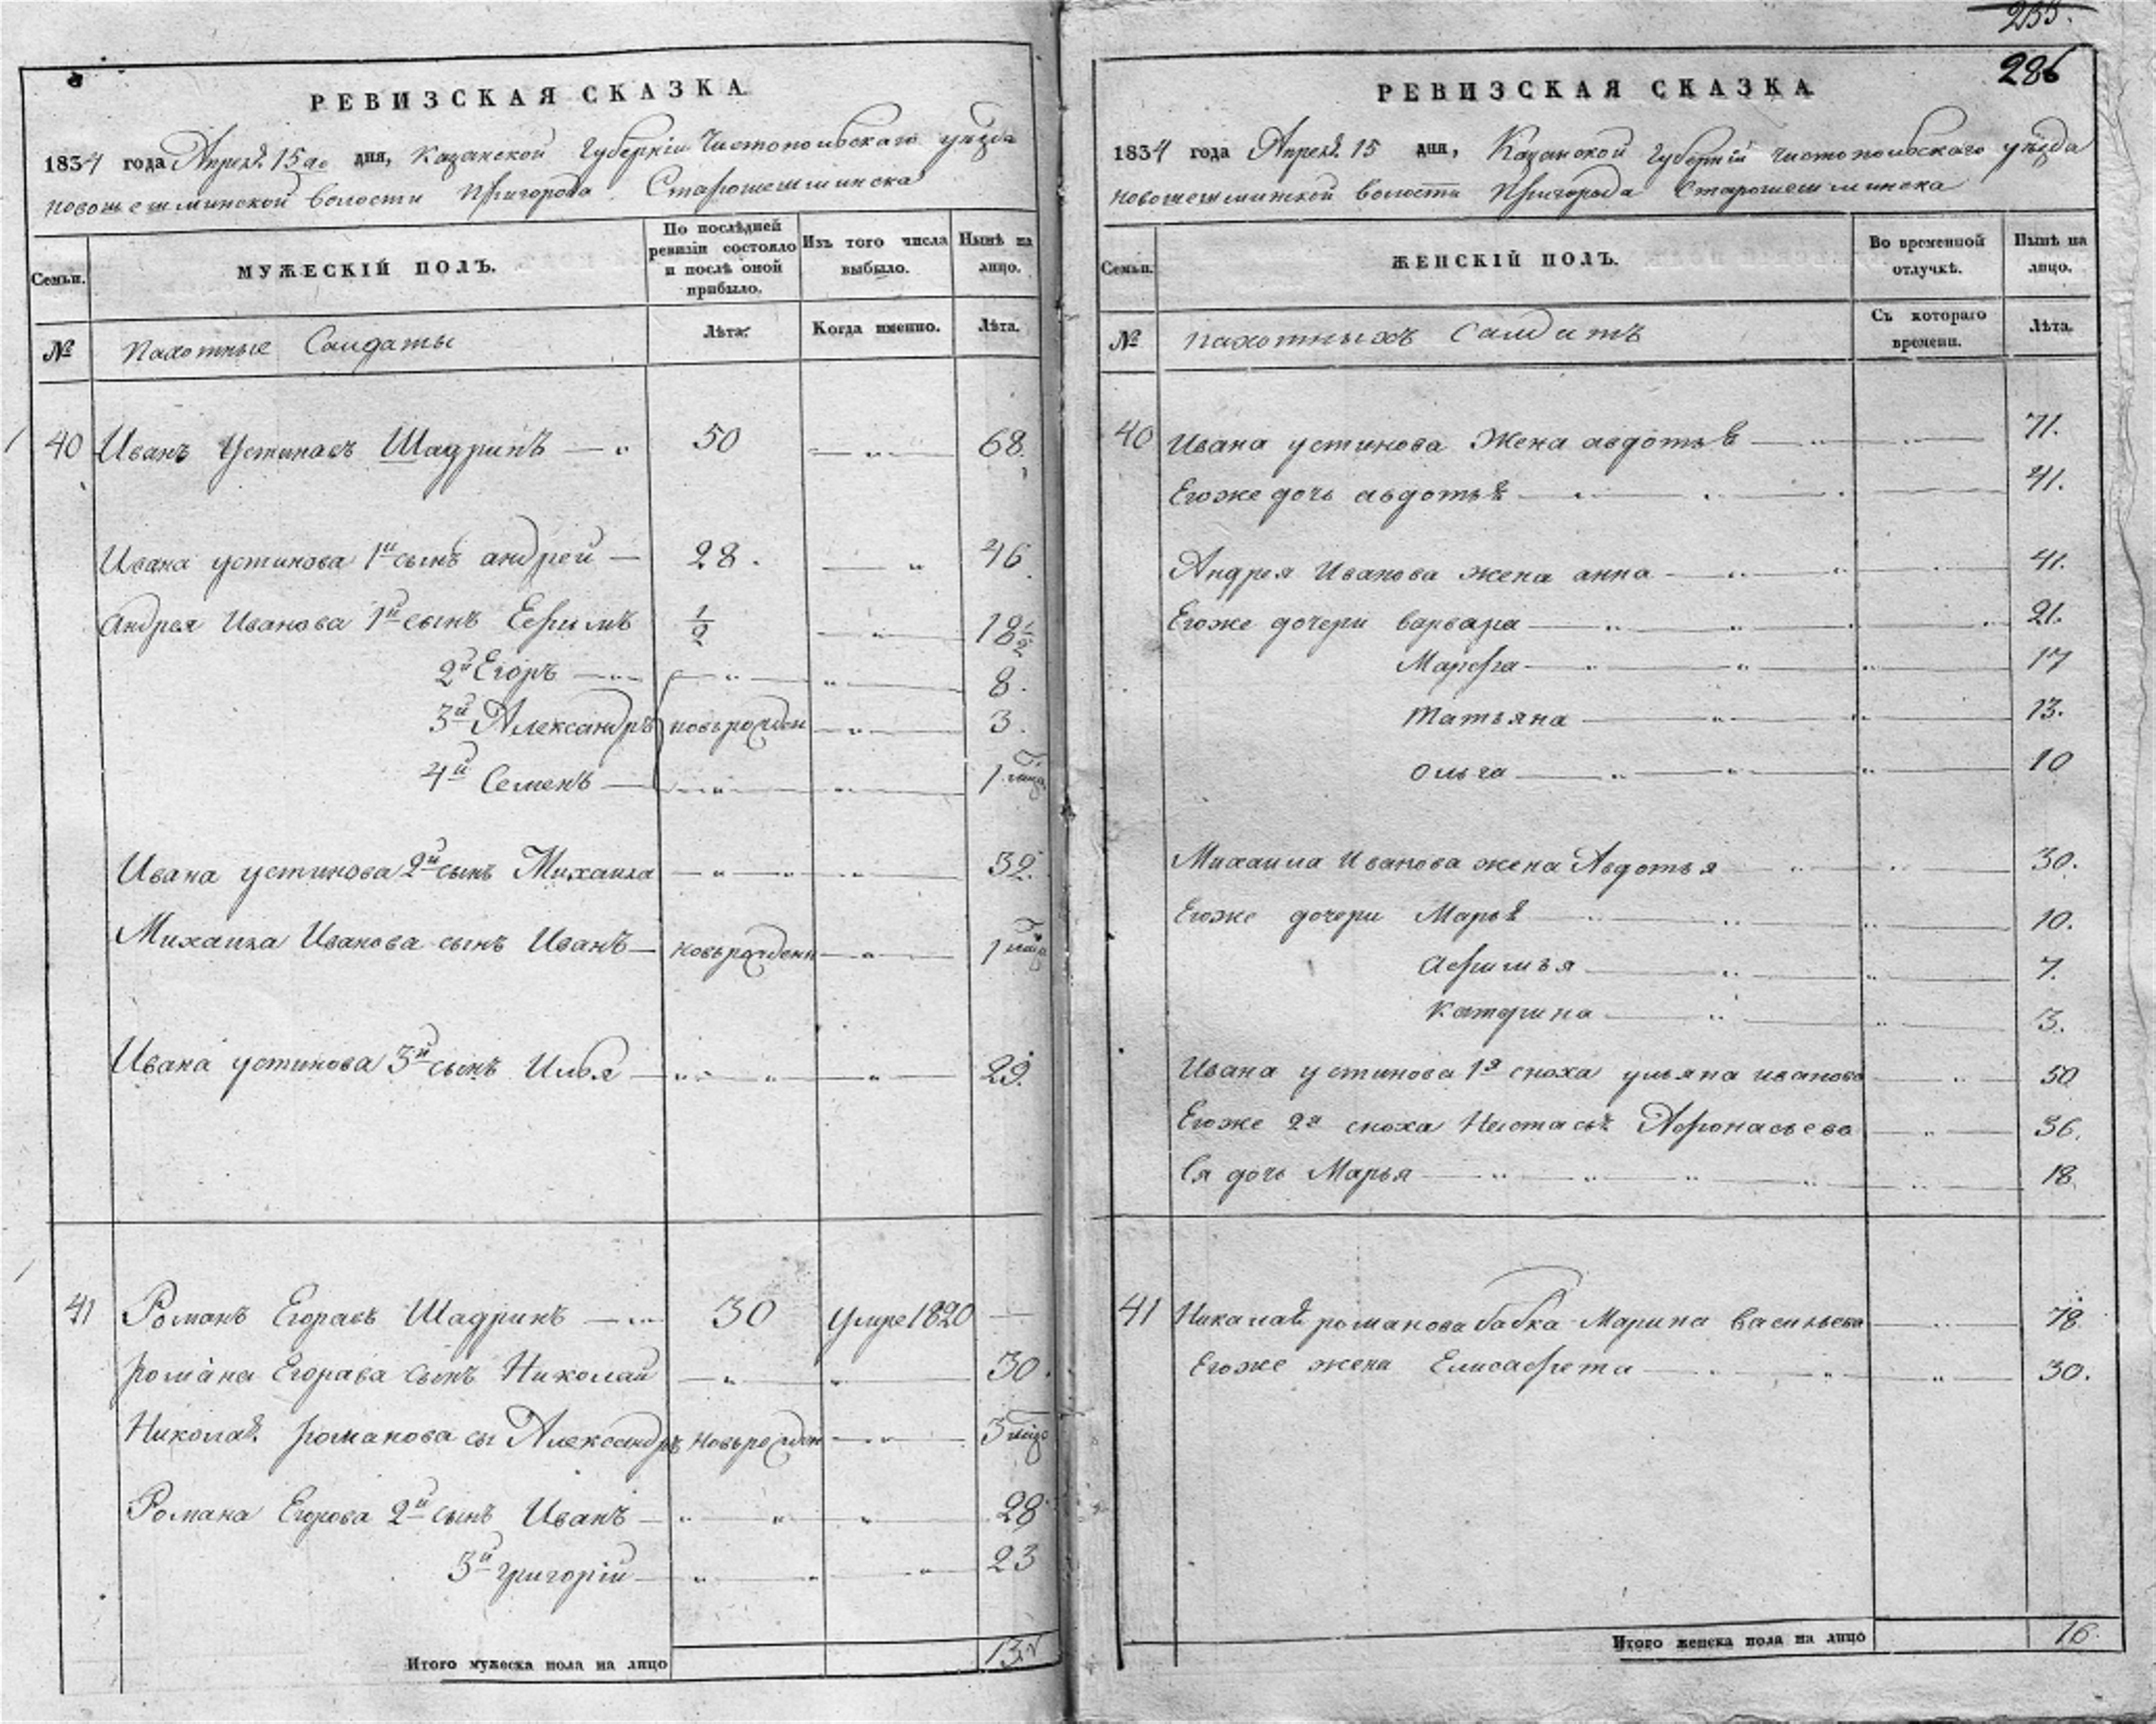 РЕВИЗСКАЯ СКАЗКА
1834 года Апреля 15го дня, Казанской Губерніи Чистопольскаго уѣзда
новошешминской волости Пригорода Старошешминска
Семьи.
МУЖЕСКІЙ ПОЛЪ.
По послѣдней ревизіи состояло и послѣ оной прибыло.
Изъ того числа выбыло.
Нынѣ на лицо.
№
Пахотные Солдаты
Лѣта.
Когда именно.
Лѣта.
40 Иванъ Устиновъ Шадринъ 50 68.
Ивана устинова 1й сынъ андрей 28. 46
Андрея Иванова 1й сынъ Ефимъ 1/2 18 1/2
2й Егоръ 8.
3й Александръ новорожден 3.
4й Семенъ 1
Ивана устинова 2й сынъ Михаила 32.
Михаила Иванова сынъ Иванъ новорожденн 1
Ивана устинова 3й сынъ Илья 29.
41 Романъ Егоравъ Шадринъ 30 Умре 1820
Романа Егорава сынъ Николай 30.
Николая романова сы Александръ новорожден 3
Романа Егорова 2й сынъ Иванъ 28
3й григорій 23
Итого мужеска пола на лицо 13
286
РЕВИЗСКАЯ СКАЗКА
1834 года Апреля 15 дня, Казанской Губерніи Чистопольскаго уѣзда
новошешминской волости Пригорода Старошешминска
Семьи.
ЖЕНСКІЙ ПОЛЪ.
Во временной отлучкѣ.
Нынѣ на лицо.
№
пахотныхъ Салдатъ
Съ котораго времени.
Лѣта.
40 Ивана устинова Жена авдотья 71.
Егоже дочь авдотья 41.
Андрея Иванова жена анна 41.
Егоже дочери варвара 21.
Марфа 17
Татьяна 13.
Ольга 10
Михаила Иванова жена Авдотья 30.
Егоже дочери Марья 10.
Афимья 7.
Катерина 3.
Ивана устинова 1я сноха ульяна иванова 50
Егоже 2я сноха Настасья Афонасьева 36.
Ея дочь Марья 18.
41 Николая романова бабка Марина Васильева 78
Егоже жена Елисафета 30.
Итого женска пола на лицо 16.